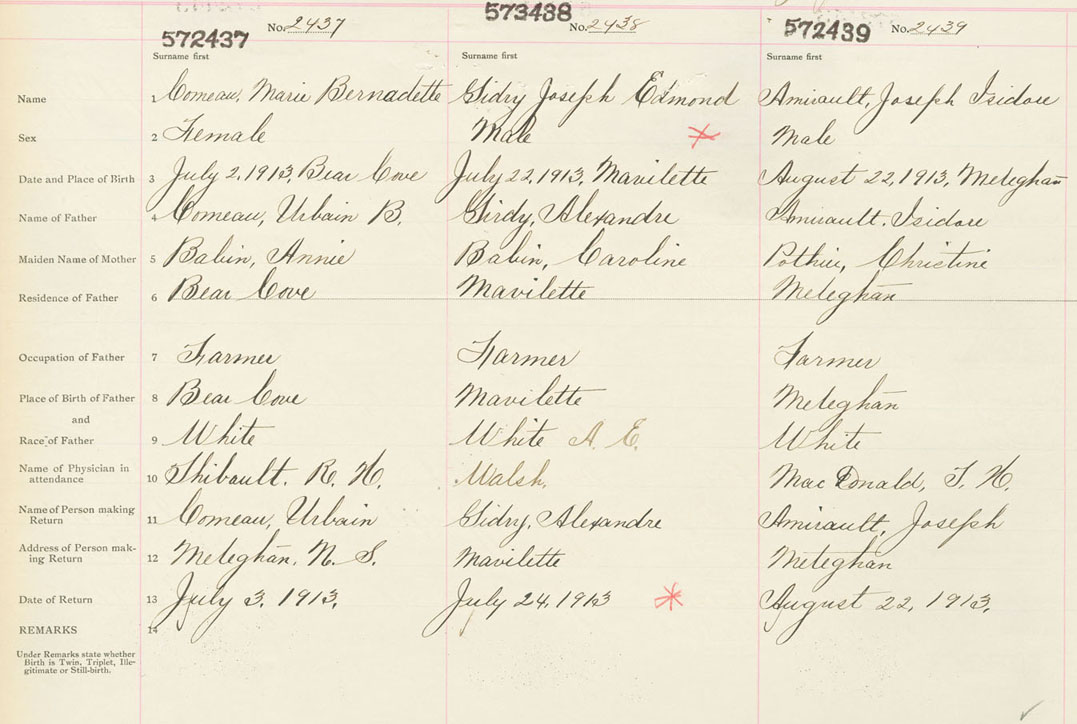 No. 2437 573438 No. 2438 572439 No. 2439
572437
Surname first Surname first Surname first
Name 1 Comeau, Marie Bernadette Gidry Joseph Edmond Amirault, Joseph Isidore
Sex 2 Female Male Male
Date and Place of Birth 3 July 2, 1913, Bear Cove July 22, 1913, Mavilette August 22, 1913, Meteghan
Name of Father 4 Comeau, Urbain B. Girdy, Alexandre Amirault, Isidore
Maiden Name of Mother 5 Babin, Annie Babin, Caroline Pothier, Christine
Residence of Father 6 Bear Cove Mavilette Meteghan
Occupation of Father 7 Farmer Farmer Farmer
Place of Birth of Father 8 Bear Cove Mavilette Meteghan
and
Race of Father 9 White White A. E. White
Name of Physician in
attendance 10 Thibault. R. H. Walsh. MacDonald, T. H.
Name of Person making
Return 11 Comeau, Urbain Gidry, Alexandre Amirault, Joseph
Address of Person mak-
ing Return 12 Meteghan, N. S. Mavilette Meteghan
Date of Return 13 July 3, 1913. July 24, 1913 August 22, 1913.
REMARKS 14
Under Remarks state whether
Birth is Twin, Triplet, Ille-
gitimate or Still-birth.